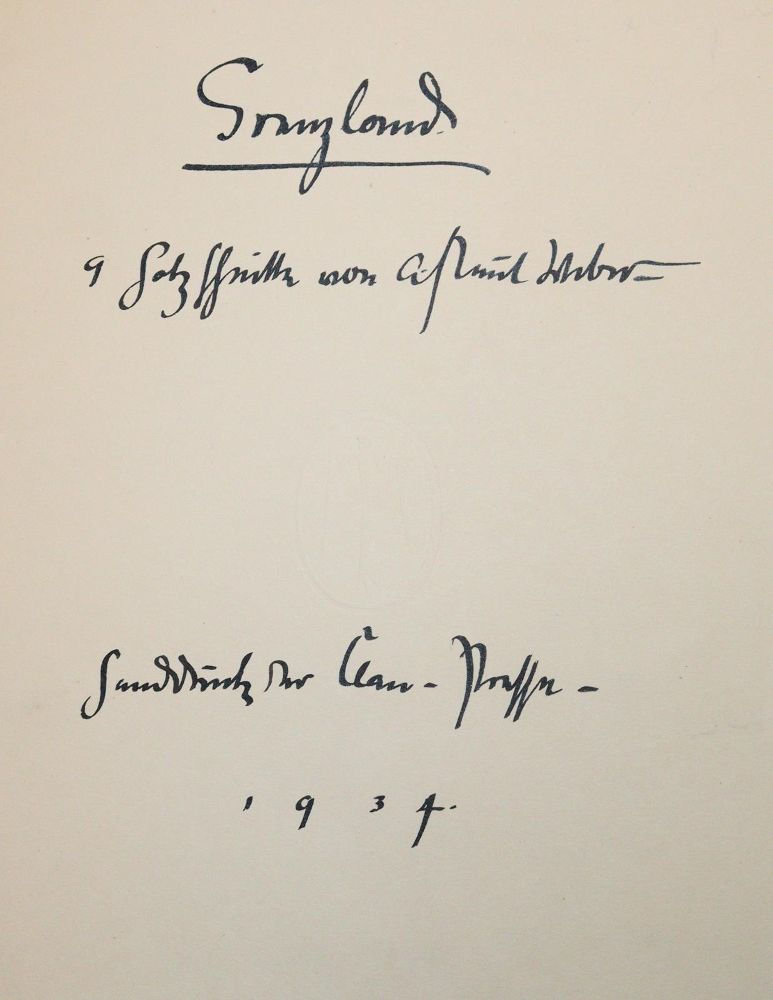 Grenzland
9 Holzschnitte von A. Paul Weber
Handdruck der Clan-Presse -
1934.